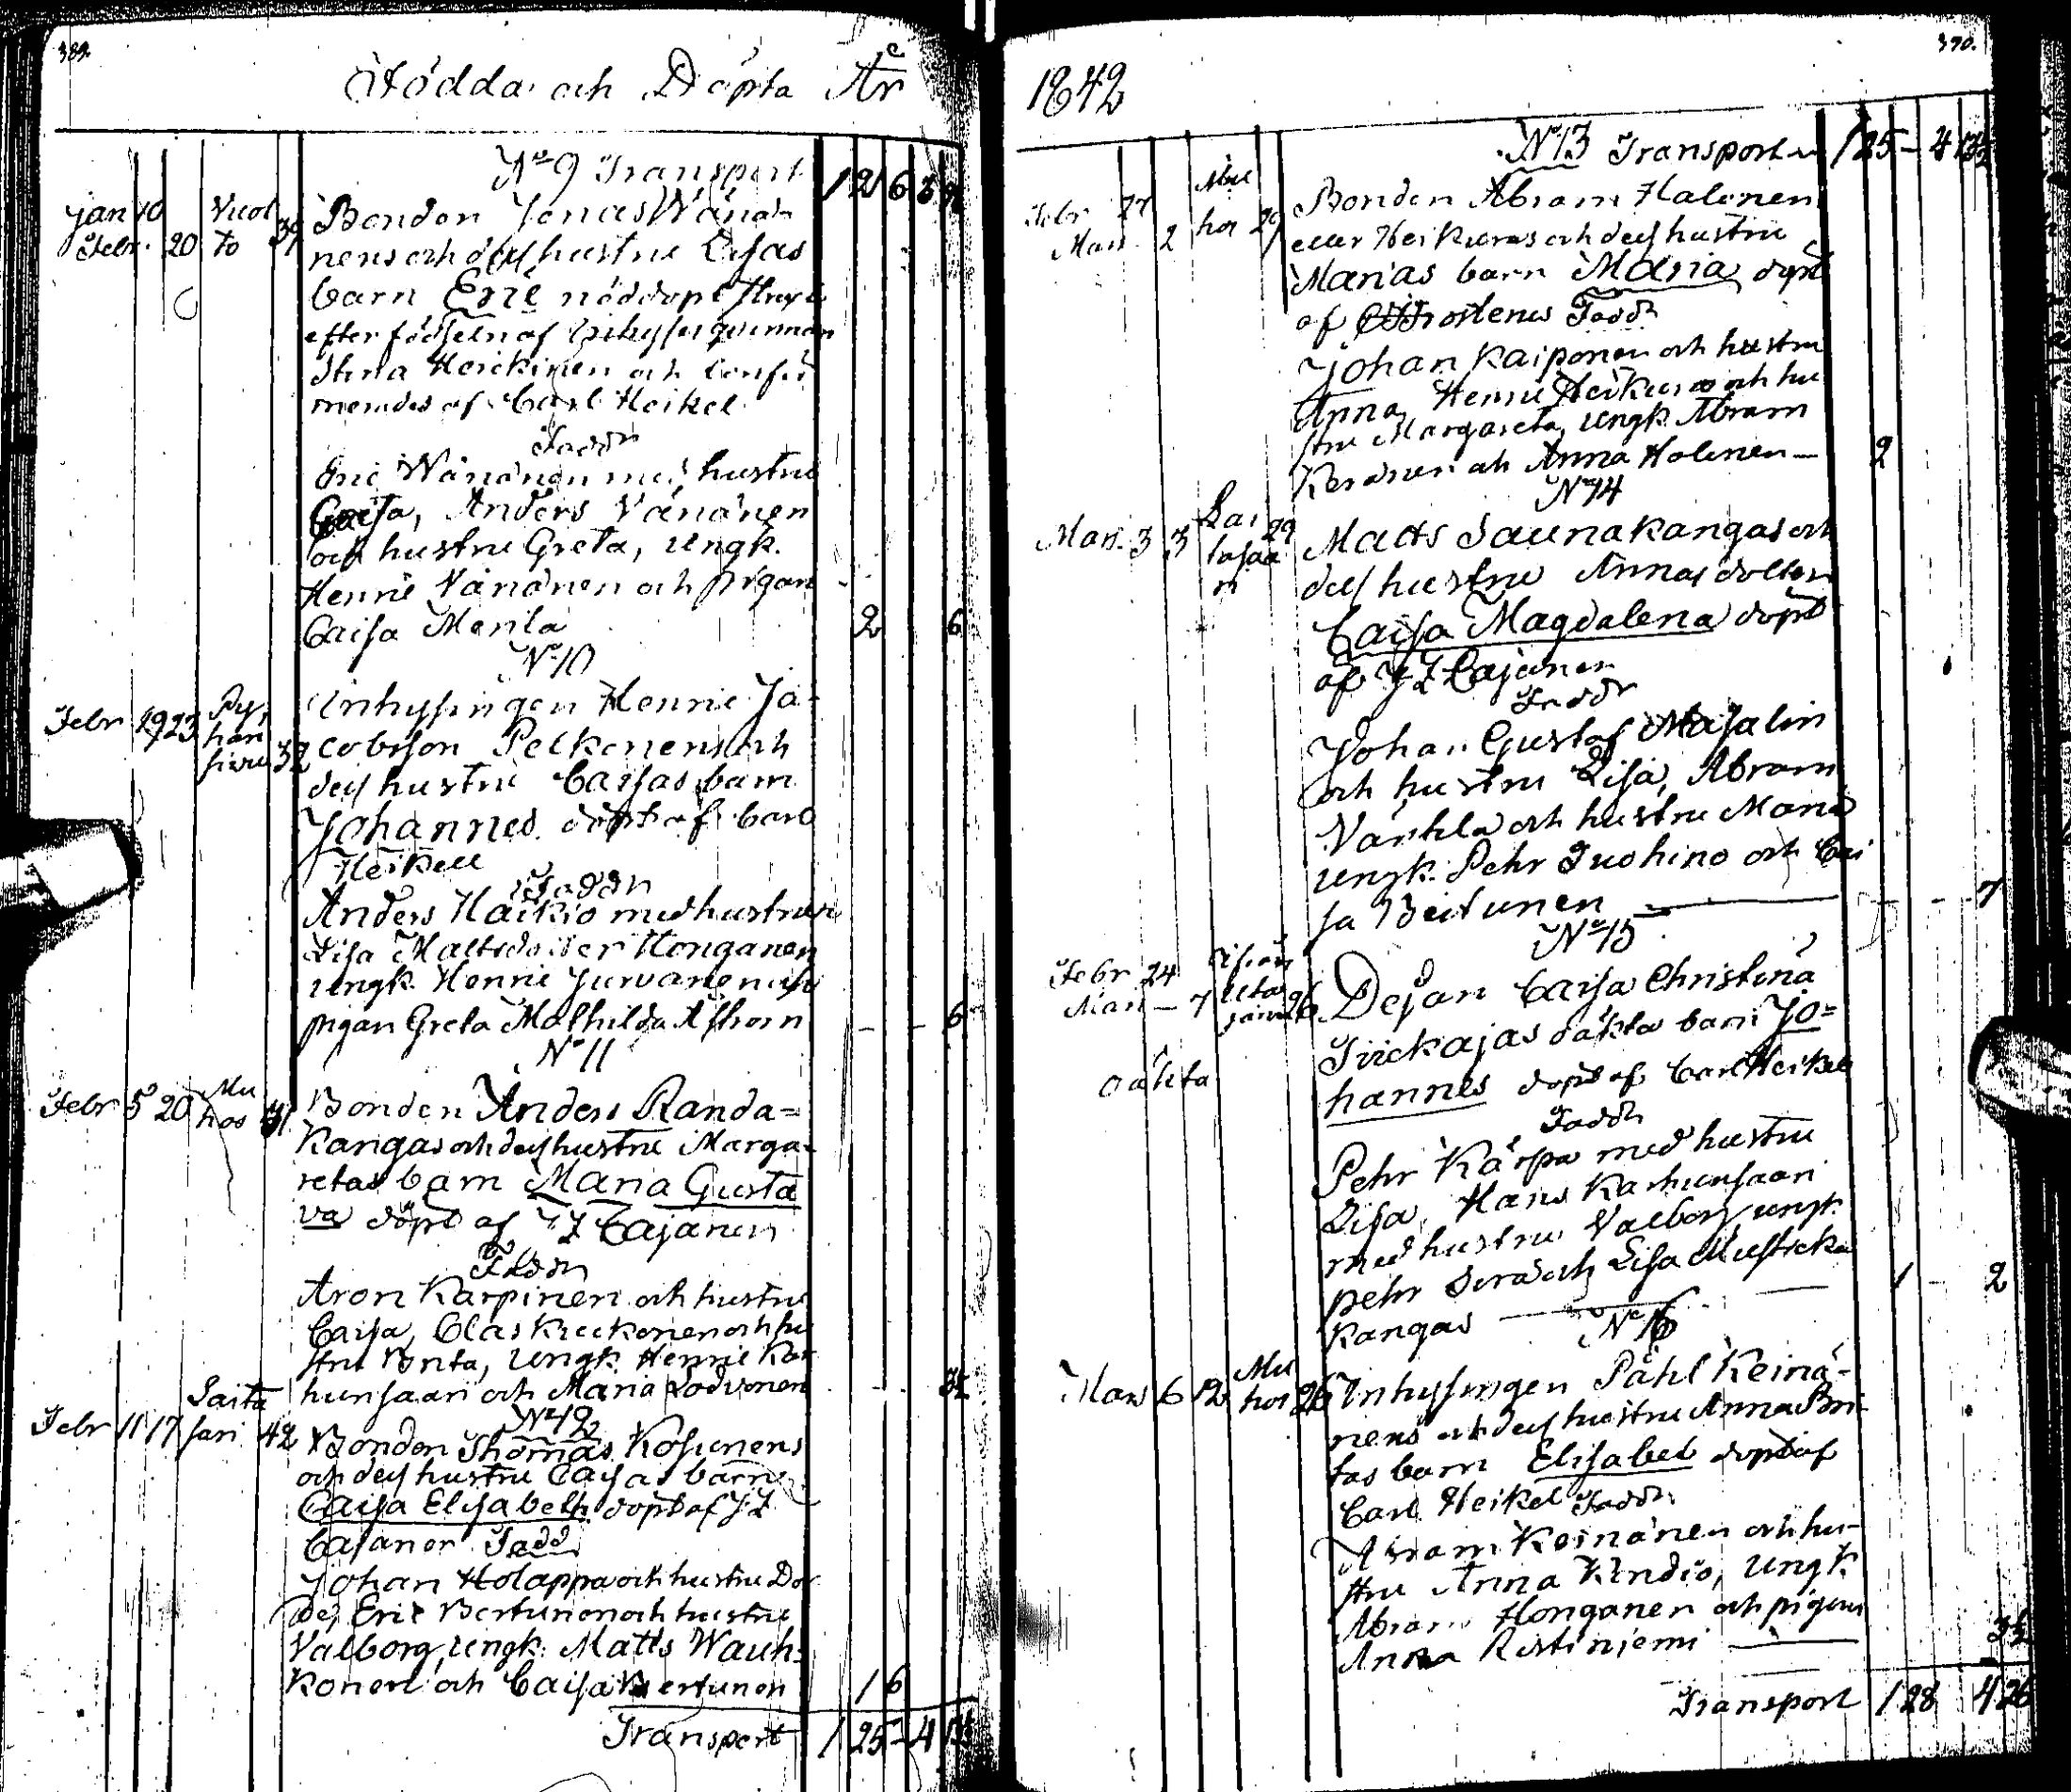 389.
Födda och Döpta År
No 9 Transport 1 2 6 3
Jan 10
Febr. 20
Vuol
to
39
Bonden Jonas Wänä-
nens och dess hustru Lisas
barn Eric nöddöpt strax
efter födseln af Inhyses qvinnan
Stina Heickinen och confir
merades af Carl Heikel
Faddr
Eric Wänänen med hustru
Caisa, Anders Vänänen
och hustru Greta, ungk.
Henric Vänänen och pigan
Caisa Merila 2 6
No 10
Febr 19 23
Py,
hän
sivu 32
Inhysingen Henric Ja-
cobsson Pelkonens och
dess hustru Caisas barn
Johannes döpt af Carl
Heikell
Faddr
Anders Haikio med hustrun
Lisa Mattsdotter Honganen
ungk. Henric Jurvanen och
pigan Greta Mathilda Ahlhorn - - 6
No 11
Febr 5 20
Mu
hos 41
Bonden Anders Randa=
kangas och dess hustru Marga-
retas barn Maria Gusta
va döpt af J F Cajanen
Faddr
Aron Karpinen och hustru
Caisa, Clas Kuckonen och hu
stru Brita, ungk. Henric Kar
hunsaari och Maria Lodvonen
No 12
Febr 11 17
Saita
sari 42
Bonden Thomas Kosunens
och dess hustru Caisas barn
Caisa Elisabeth döpt af J F
Cajaner Fadd
Johan Holappa och hustru Dor
de, Eric Bertunen och hustru
Valborg, ungk. Matts Wauh-
konen och Caisa Bertunen 1 6
Transport 1 25 - 4
370.
1842
No 13 Transport 1 25 - 4
Febr 27
Mars 2
Mu
hos 29
Bonden Abram Halonen
eller Heikuras och dess hustru
Marias barn Maria döpt
af Frostenus Faddr
Johan Kaiponen och hustru
Anna, Henric Heikuras och hu
stru Margareta, ungk. Abram
Keränen och Anna Halonen - 2
No 14
Mars 3 3
29
Matts Saunakangas och
dess hustru Annas dotter
Caisa Magdalena döpt
af J F Cajanen
Faddr
Johan Gustaf Masalin
och hustru Lisa, Abram
Värtila och hustru Maria
ungk. Pehr Juohino och Cai
sa Beitunen - - 7
No 15
Febr 24
Mars - 7
26
oäkta
Dejan Caisa Christina
Tvickajas oäkta barn Jo=
hannes döpt af Carl Heikel
Faddr
Pehr Kärpä med hustru
Lisa, Hans Karhunsaari
med hustru Valborg, ungk.
Pehr Sorsa och Lisa Musticka
kangas 1 - 2
No 16
Mars 6 12
Mu
hos 26
Inhysingen Påhl Keinä-
nens och dess hustru Anna Bri
tas barn Elisabet döpt af
Carl Heikel Faddr
Abram Keinänen och hu-
stru Anna Kindio, ungk
Abram Honganen och pigan
Anna Ristiniemi
Transport 1 28 4 26